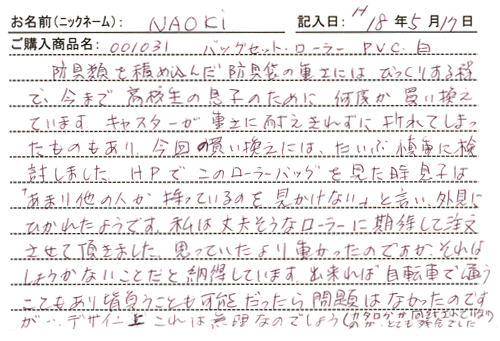 お名前(ニックネーム): NAOKi 記入日: H18年5月17日
ご購入商品名: 001031 バッグセット・ローラー PVC 白
防具類を積め込んだ防具袋の重さには びっくりする程
で、今まで高校生の息子のために 何度か買い換え
ています。キャスターが重さに耐えきれずに折れてしまっ
たものもあり、今回の買い換えには、だいぶ慎重に検
討しました。HPでこのローラーバッグを見た時 息子は
「あまり他の人が持っているのを見かけない」と言い、外見に
ひかれたようです。私は丈夫そうなローラーに期待して注文
させて頂きました。思っていたより重かったのですが、それは
しょうがないことだと納得しています。出来れば自転車で通う
こともあり背負うことも可能だったら問題はなかったのです
が… デザイン上 これは無理なのでしょう